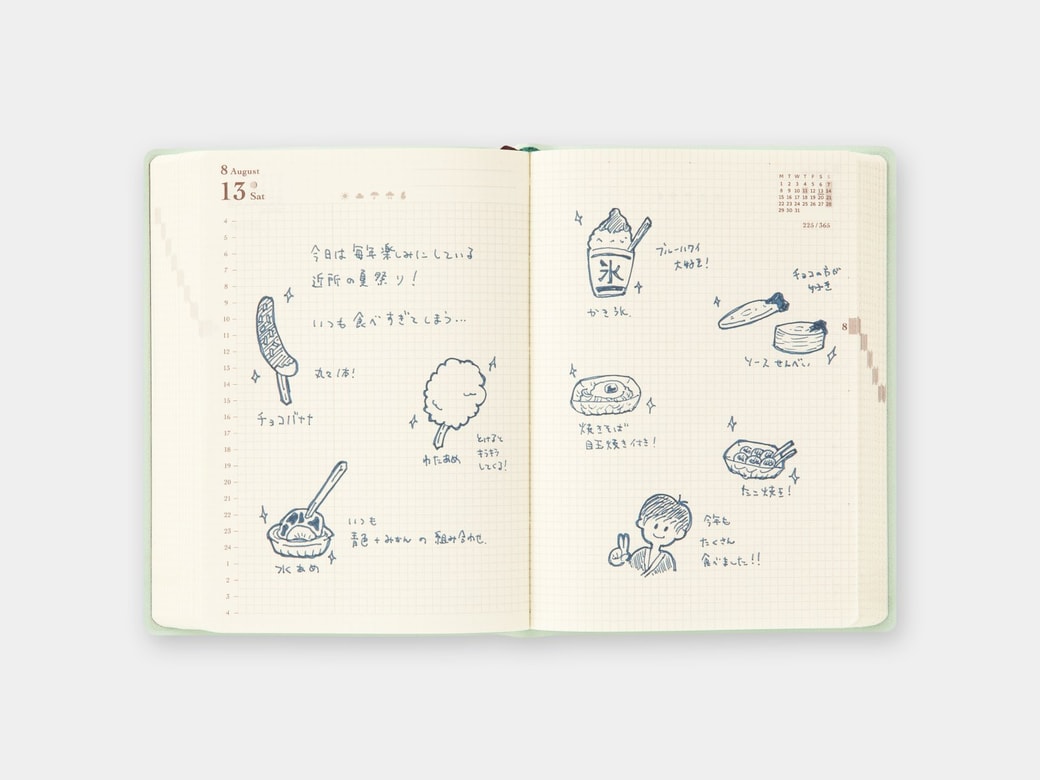 8 August
13 Sat
4
5
6
7
8
9
10
11
12
13
14
15
16
17
18
19
20
21
22
23
24
1
2
3
4
今日は毎年楽しみにしている
近所の夏祭り!
いつも食べすぎてしまう…
丸で1本!
チョコバナナ
わたあめ
とけると
キラキラ
してくる!
いつも
青色+みかんの組み合わせ.
水あめ
M T W T F S S
1 2 3 4 5 6 7
8 9 10 11 12 13 14
15 16 17 18 19 20 21
22 23 24 25 26 27 28
29 30 31
225/365
氷
ブルーハワイ
大好き!
かき氷.
チョコの方が
好き
ソースせんべい
8
焼きそば
目玉焼き付き!
たこ焼き!
今年も
たくさん
食べました!!